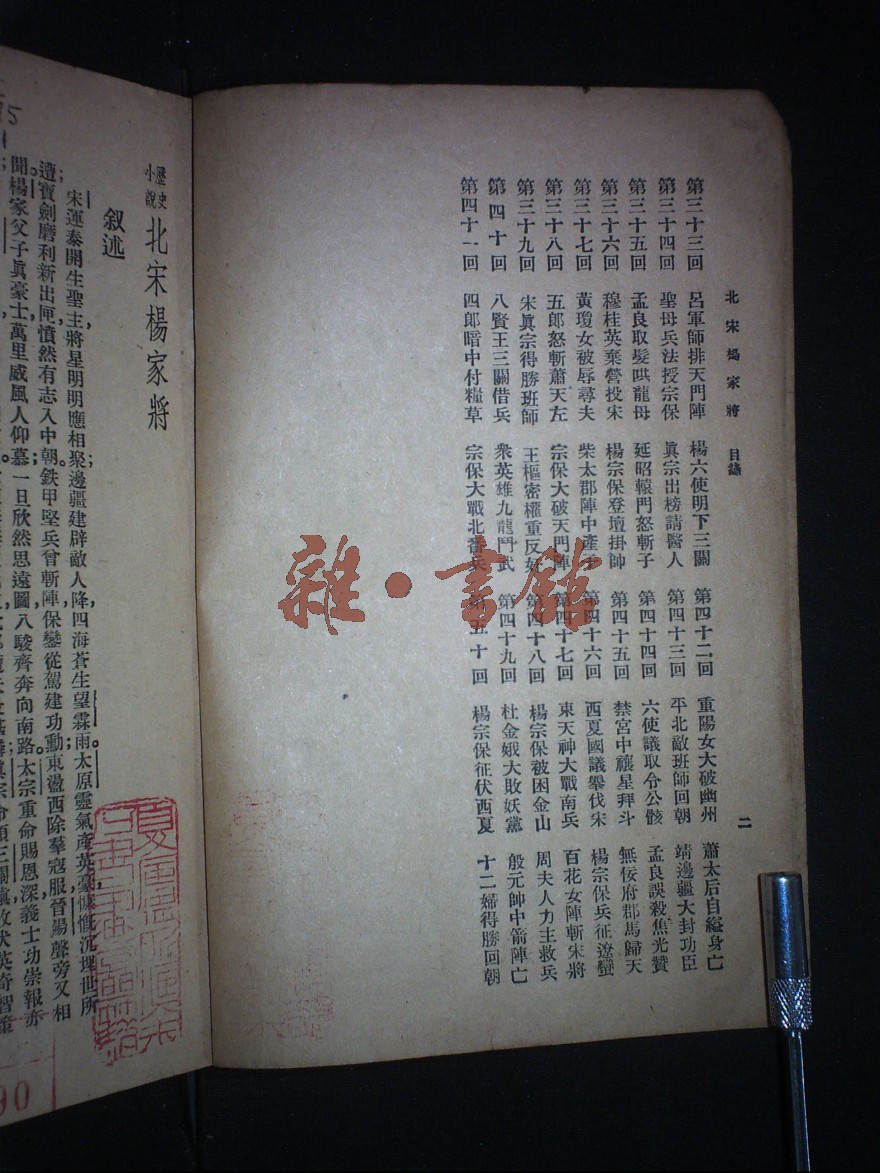 北宋楊家將 目錄 二
第三十三回 呂軍師排天門陣 楊六使明下三關
第三十四回 聖母兵法授宗保 眞宗出榜請醫人
第三十五回 孟良取髮哄龍母 延昭轅門怒斬子
第三十六回 穆桂英棄營投宋 楊宗保登壇掛帥
第三十七回 黃瓊女被辱尋夫 柴太郡陣中產子
第三十八回 五郎怒斬蕭天左 宗保大破天門陣
第三十九回 宋眞宗得勝班師 王樞密權重反奸
第四十回 八賢王三關借兵 衆英雄九龍鬥武
第四十一回 四郎暗中付糧草 宗保大戰北番兵
第四十二回 重陽女大破幽州 蕭太后自縊身亡
第四十三回 平北敵班師回朝 靖邊疆大封功臣
第四十四回 六使議取令公骸 孟良誤殺焦光贊
第四十五回 禁宮中禳星拜斗 無佞府郡馬歸天
第四十六回 西夏國議舉伐宋 楊宗保兵征遼蠻
第四十七回 東天神大戰南兵 百花女陣斬宋將
第四十八回 楊宗保被困金山 周夫人力主救兵
第四十九回 杜金娥大敗妖黨 殷元帥中箭陣亡
第五十回 楊宗保征伏西夏 十二婦得勝回朝
雜·書館
歷史小說 北宋楊家將
叙述
宋運泰開生聖主，將星明明應相聚；邊疆建辟敵人降，四海蒼生望霖雨。太原靈氣產英豪，慷慨沉埋世所
遭；寶劍磨利新出匣，憤然有志入中朝。鉄甲堅兵曾斬陣，保鑾從駕建功勳；東盪西除羣寇服，晉陽聲旁又相
聞。楊家父子眞豪士，萬里威風人仰慕；一旦欣然思遠圖，八駿齊奔向南路。太宗重命賜恩深，義士功崇報亦
90